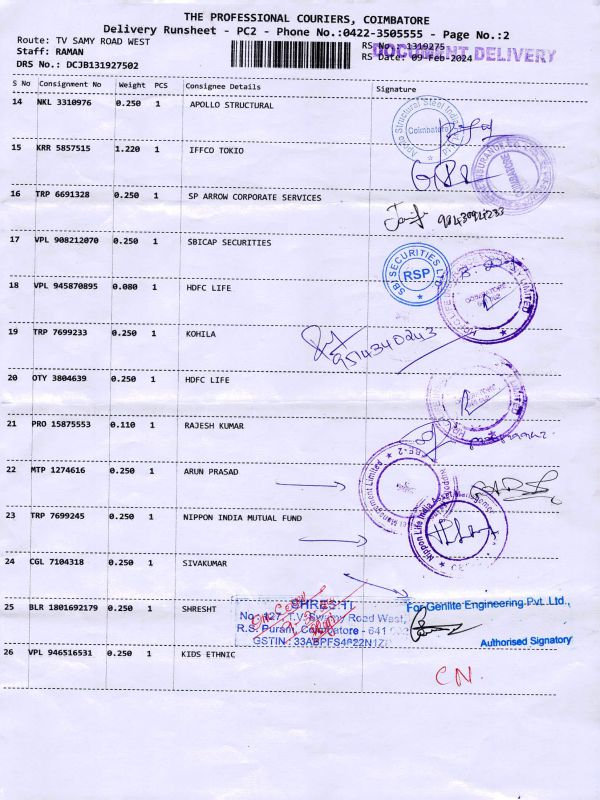 THE PROFESSIONAL COURIERS, COIMBATORE
Delivery Runsheet - PC2 - Phone No.:0422-3505555 - Page No.:2
Route: TV SAMY ROAD WEST
RS No.: 1319275
DOCUMENT DELIVERY
Staff: RAMAN
RS Date: 09-Feb-2024
DRS No.: DCJB131927502
S No Consignment No Weight PCS Consignee Details Signature
14 NKL 3310976 0.250 1 APOLLO STRUCTURAL
Coimbatore
15 KRR 5857515 1.220 1 IFFCO TOKIO
16 TRP 6691328 0.250 1 SP ARROW CORPORATE SERVICES
17 VPL 908212070 0.250 1 SBICAP SECURITIES
SBI SECURITIES LTD
RSP
18 VPL 945870895 0.080 1 HDFC LIFE
19 TRP 7699233 0.250 1 KOHILA
9514340243
20 OTY 3804639 0.250 1 HDFC LIFE
21 PRO 15875553 0.110 1 RAJESH KUMAR
22 MTP 1274616 0.250 1 ARUN PRASAD
23 TRP 7699245 0.250 1 NIPPON INDIA MUTUAL FUND
Nippon Life India Asset Management
24 CGL 7104318 0.250 1 SIVAKUMAR
For Genlite Engineering Pvt. Ltd.,
Authorised Signatory
25 BLR 1801692179 0.250 1 SHRESHT
SHRESHT
No: 427, T.V. Swamy Road West,
R.S. Puram, Coimbatore - 641
GSTIN : 33ABPFS4622N1Z
26 VPL 946516531 0.250 1 KIDS ETHNIC
CN.